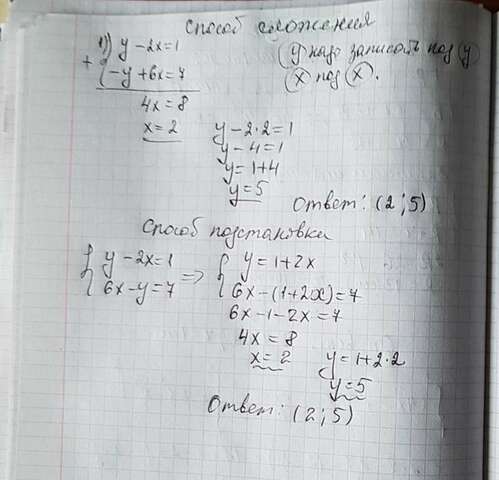 Способ сложения
1) y - 2x = 1
+ { -y + 6x = 7
(y надо записать под y
x под x).
4x = 8
x = 2
y - 2·2 = 1
y - 4 = 1
y = 1 + 4
y = 5
Ответ: (2; 5)
Способ подстановки
{ y - 2x = 1 => { y = 1 + 2x
{ 6x - y = 7 { 6x - (1 + 2x) = 7
6x - 1 - 2x = 7
4x = 8
x = 2 y = 1 + 2·2
y = 5
Ответ: (2; 5)